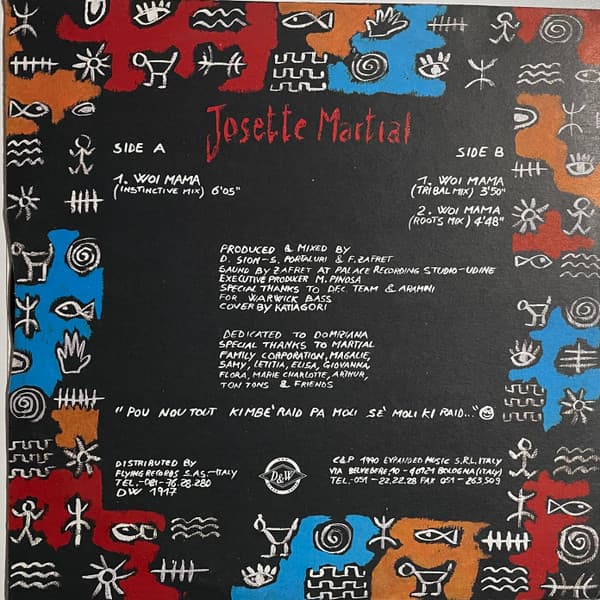 Josette Martial
SIDE A
1. WOI MAMA
(INSTINCTIVE MIX) 6'05"
SIDE B
1. WOI MAMA
(TRIBAL MIX) 3'50"
2. WOI MAMA
(ROOTS MIX) 4'48"
PRODUCED & MIXED BY
D. SION-S. PORTALURI & F. ZAFRET
SAUND BY ZAFRET AT PALACE RECORDING STUDIO-UDINE
EXECUTIVE PRODUCER M. PINOSA
SPECIAL THANKS TO DEC. TEAM & ARAMINI
FOR WARWICK BASS
COVER BY KATIAGORI
DEDICATED TO DOMIZIANA
SPECIAL THANKS TO MARTIAL
FAMILY CORPORATION, MAGALIE,
SAMY, LETITIA, ELISA, GIOVANNA,
FLORA, MARIE CHARLOTTE, ARTHUR,
TON TONS & FRIENDS
"POU NOU TOUT KIMBE' RAID PA MOLI SE' MOLI KI RAID..."
DISTRIBUTED BY
FLYING RECORDS S.A.S.-ITALY
TEL.-081-76.28.280
DW 1917
D&W
C&P 1990 EXPANDED MUSIC S.R.L. ITALY
VIA BELVEDERE, 10 - 40121 BOLOGNA (ITALY)
TEL.-051-22.22.28 FAX 051-263.509